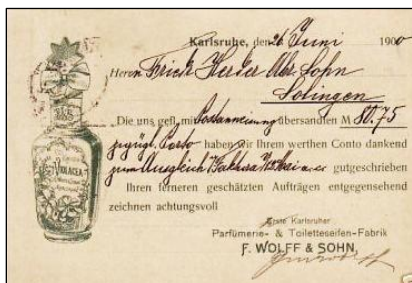 Karlsruhe, den 26 Juni 1900
Herrn Friedr. Herder Abr. Sohn
Solingen
Die uns gefl. mit Postanweisung übersandten M 80.75
zuzügl. Porto haben wir Ihrem werthen Conto dankend
zum Ausgleich Faktura gutgeschrieben
Ihren ferneren geschätzten Aufträgen entgegensehend
zeichnen achtungsvoll
Erste Karlsruher
Parfümerie- & Toiletteseifen-Fabrik
F. WOLFF & SOHN.